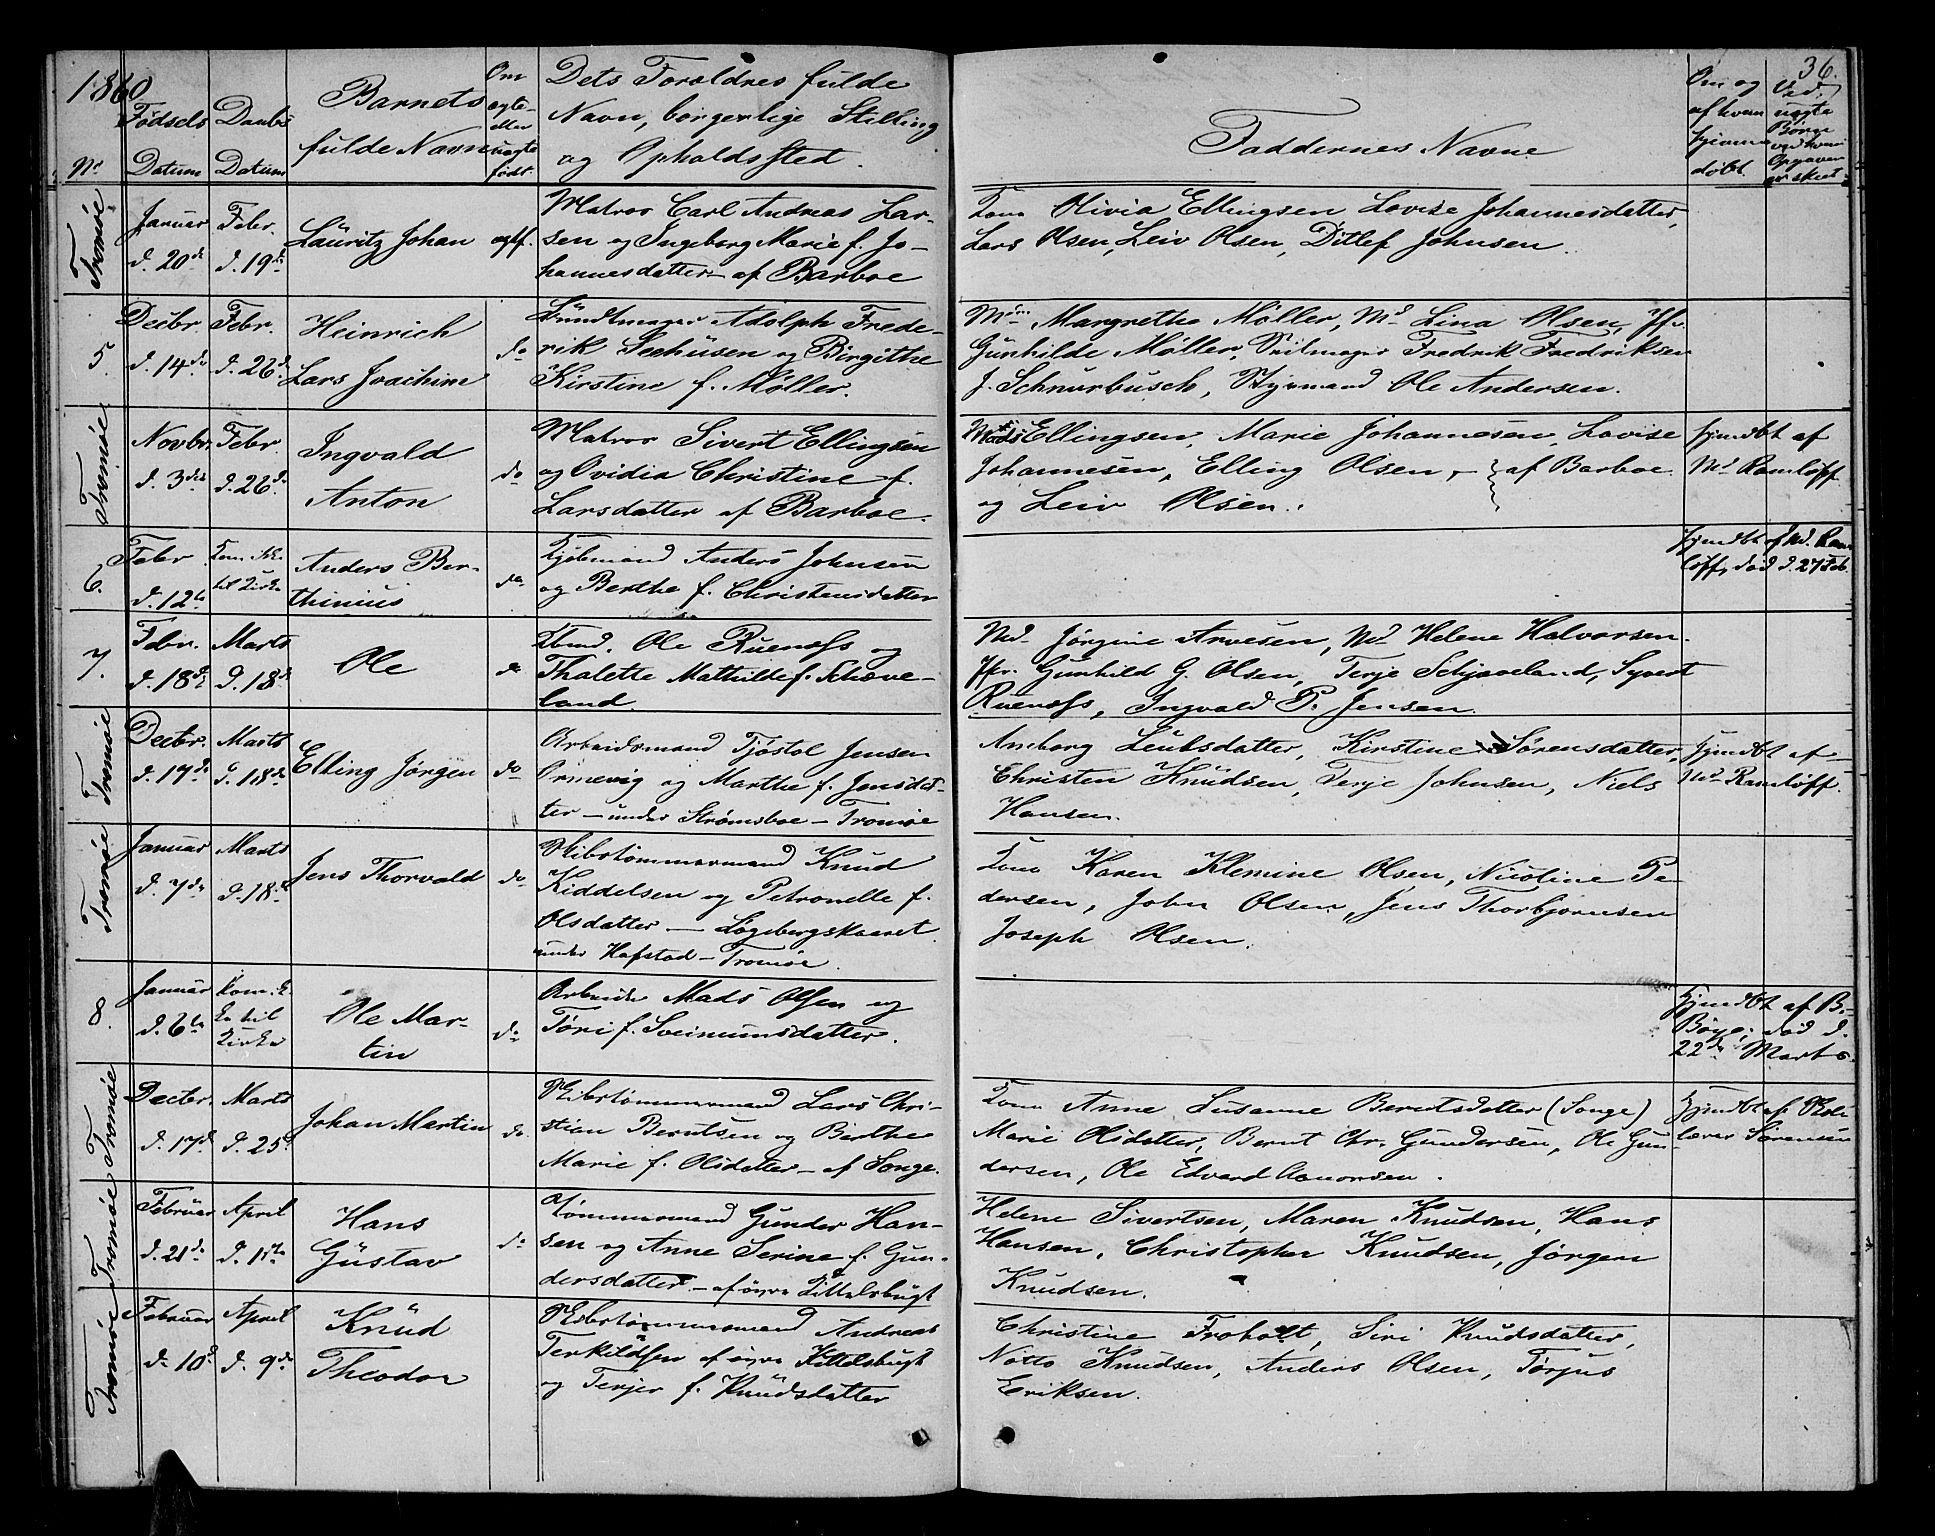 1860
36.
No
Fødsels
Datum
Daabs
Datum
Barnets
fulde Navn
Om
ægte
eller
uægte
født.
Dets Forældres fulde
Navn, borgerlige Stilling
og Opholdssted.
Faddernes Navne
Om og
af hvem
hjemme
døbt.
Ved
uægte
Børn
ved hvem
Opgaven
er skeet
Tromøe
Januar
d. 20de
Febr.
d. 19de
Lauritz Johan
ægtf.
Matros Carl Andreas Lar-
sen og Ingeborg Marie f. Jo-
hannesdatter af Barboe
Kone Olivia Ellingsen Lovise Johannesdatter,
Lars Olsen, Leiv Olsen, Ditlef Johnsen.
5.
Decbr.
d. 14de
Febr.
d. 26de
Heinrich
Lars Joachim
do
Adolph Frede-
rik Seehusen og Birgithe
Kirstine f. Møller.
Mm Margrethe Møller, Md Lina Olsen, Jfr.
Gunhilde Møller, Seilmager Fredrik Fredriksen
J. Schnurbusch, Styrmand Ole Andersen.
Tromøe
Novbr.
d. 3die
Febr.
d. 26de
Ingvald
Anton
do
Matros Sivert Ellingsen
og Ovidia Christine f.
Larsdatter af Barboe.
Mads Ellingsen, Marie Johannesen, Lovise
Johannesen, Elling Olsen, - af Barboe
og Leiv Olsen.
hjemdbt af
Md Ramløff
6.
Febr
d. 12te
Kom ikke
til Kirke
Anders Ber-
thinius
do
Kjøbmand Anders Johnsen
og Berthe f. Christensdatter
hjemdbt af Md. Ram-
løff, død d. 27 Feb.
7.
Febr.
d. 18de
Marts
d. 18de
Ole
do
Ole Ruenæss og
Thalette Mathilde f. Schæve-
land.
Md. Jørgine Arvesen, Md Helene Halvorsen.
Jfr. Gunhild G. Olsen, Terje Schjæveland, Syvert
Ruenæss, Ingvald P. Jensen.
Tromøe
Decbr.
d. 17de
Marts
d. 18de
Elling Jørgen
do
Arbeidsmand Tjøstol Jensen
Ormevig og Marthe f. Jensdat-
ter - under Strømsboe - Tromøe
Aneborg Leubsdatter, Kirstine Sørensdatter,
Christen Knudsen, Terje Johnsen, Niels
Hansen.
hjemdbt af
Md Ramløff.
Tromøe
Januar
d. 7de
Marts
d. 18de
Jens Thorvald
do
Skibstømmermand Knud
Kiddelsen og Petronelle f.
Olsdatter - Løgebergskaaret
under Hofstad - Tromøe.
Kone Karen Klemine Olsen, Nicoline Pe-
dersen, John Olsen, Jens Thorbjørnsen
Joseph Olsen.
8.
Januar
d. 6te
Kom ik-
ke til
Kirke
Ole Mar-
tin
do
Arbeide Mads Olsen og
Tøri f. Sveinunsdatter.
hjemdbt af B.
Bøye, død d.
22de Marts.
Tromøe
Decbr.
d. 17de
Marts
d. 25d
Johan Martin
do.
Skibstømmermand Lars Chri-
stian Berntsen og Birthe
Marie f. Olsdatter - af Songe.
Kone Anne Susanne Berntsdatter (Songe)
Marie Olsdatter, Bernt Chr. Gundersen, Ole Gun-
dersen, Ole Edvard Aanonsen.
hjemdbt af Skole-
lærer Sørensen
Tromøe
Februar
d. 21de
April
d. 1ste
Hans
Gustav
do
Tømmermand Gunder Han-
sen og Anne Serine f. Gun-
dersdatter - af øvre Kittelsbugt
Helene Sivertsen, Maren Knudsen, Hans
Hansen, Christopher Knudsen, Jørgen
Knudsen.
Tromøe
Februar
d. 10d
April
d. 9de
Knud
Theodor
Skibstømmermand Andreas
Terkildsen af øvre Kittelsbugt
og Terjer f. Knudsdatter
Christine Froholt, Siri Knudsdatter,
Notto Knudsen, Anders Olsen, Tørjus
Eriksen.